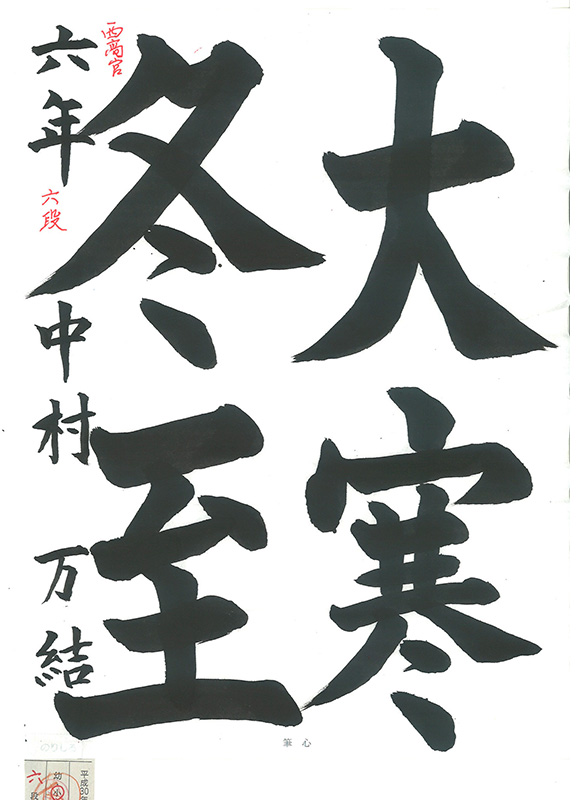 大寒
冬至
西高宮
六年 六段 中村 万結
筆 心
のりしろ
平成30年
幼 小
六段